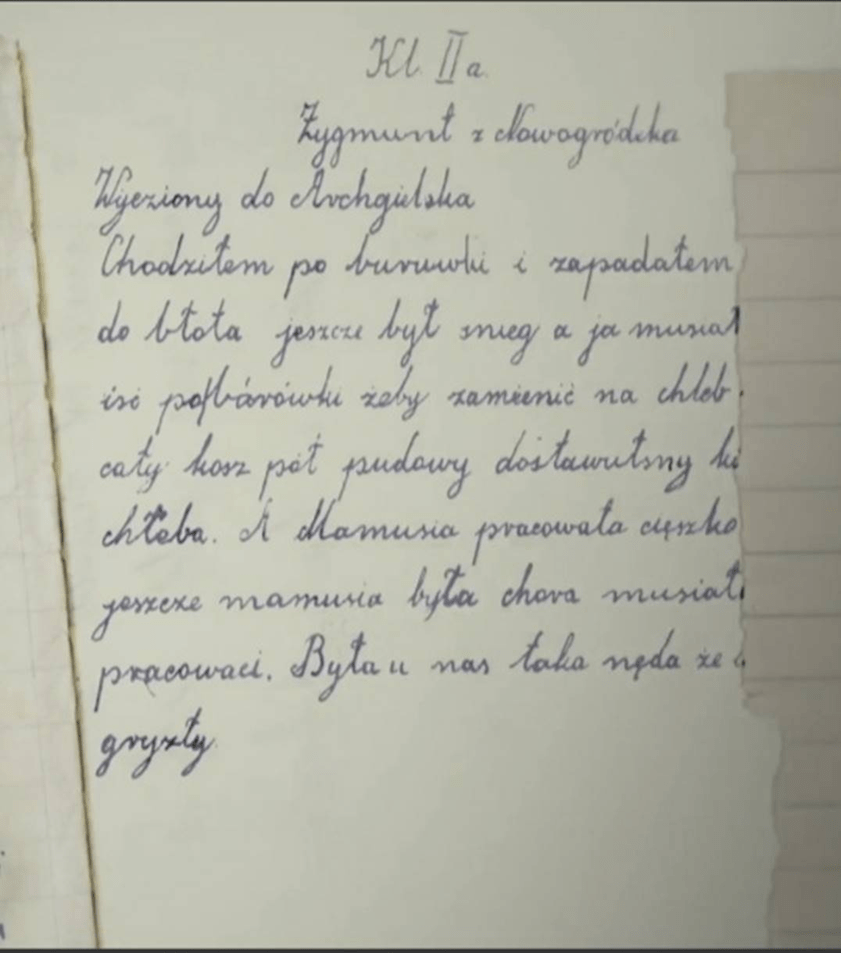 Kl. II a.
Zygmunt z Nowogródzka
Wyeziony do Archgielska
Chodziłem po buruwki i zapadałem
do błota jeszcze był snieg a ja musiał
iść po borówki żeby zamienić na chleb.
cały kosz pół pudowy dostawulismy
chleba. A Mamusia pracowała cięszko
jeszcze mamusia była chora musiał
pracowaci. Była u nas taka nęda że
gryzły